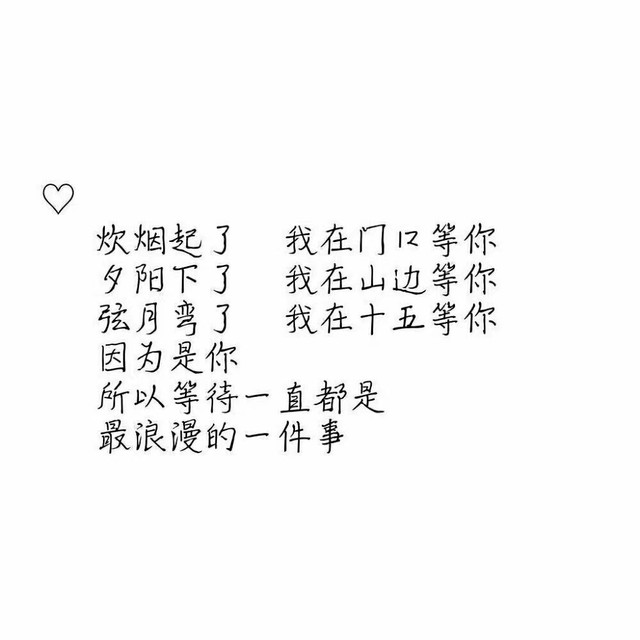 炊烟起了 我在门口等你
夕阳下了 我在山边等你
弦月弯了 我在十五等你
因为是你
所以等待一直都是
最浪漫的一件事